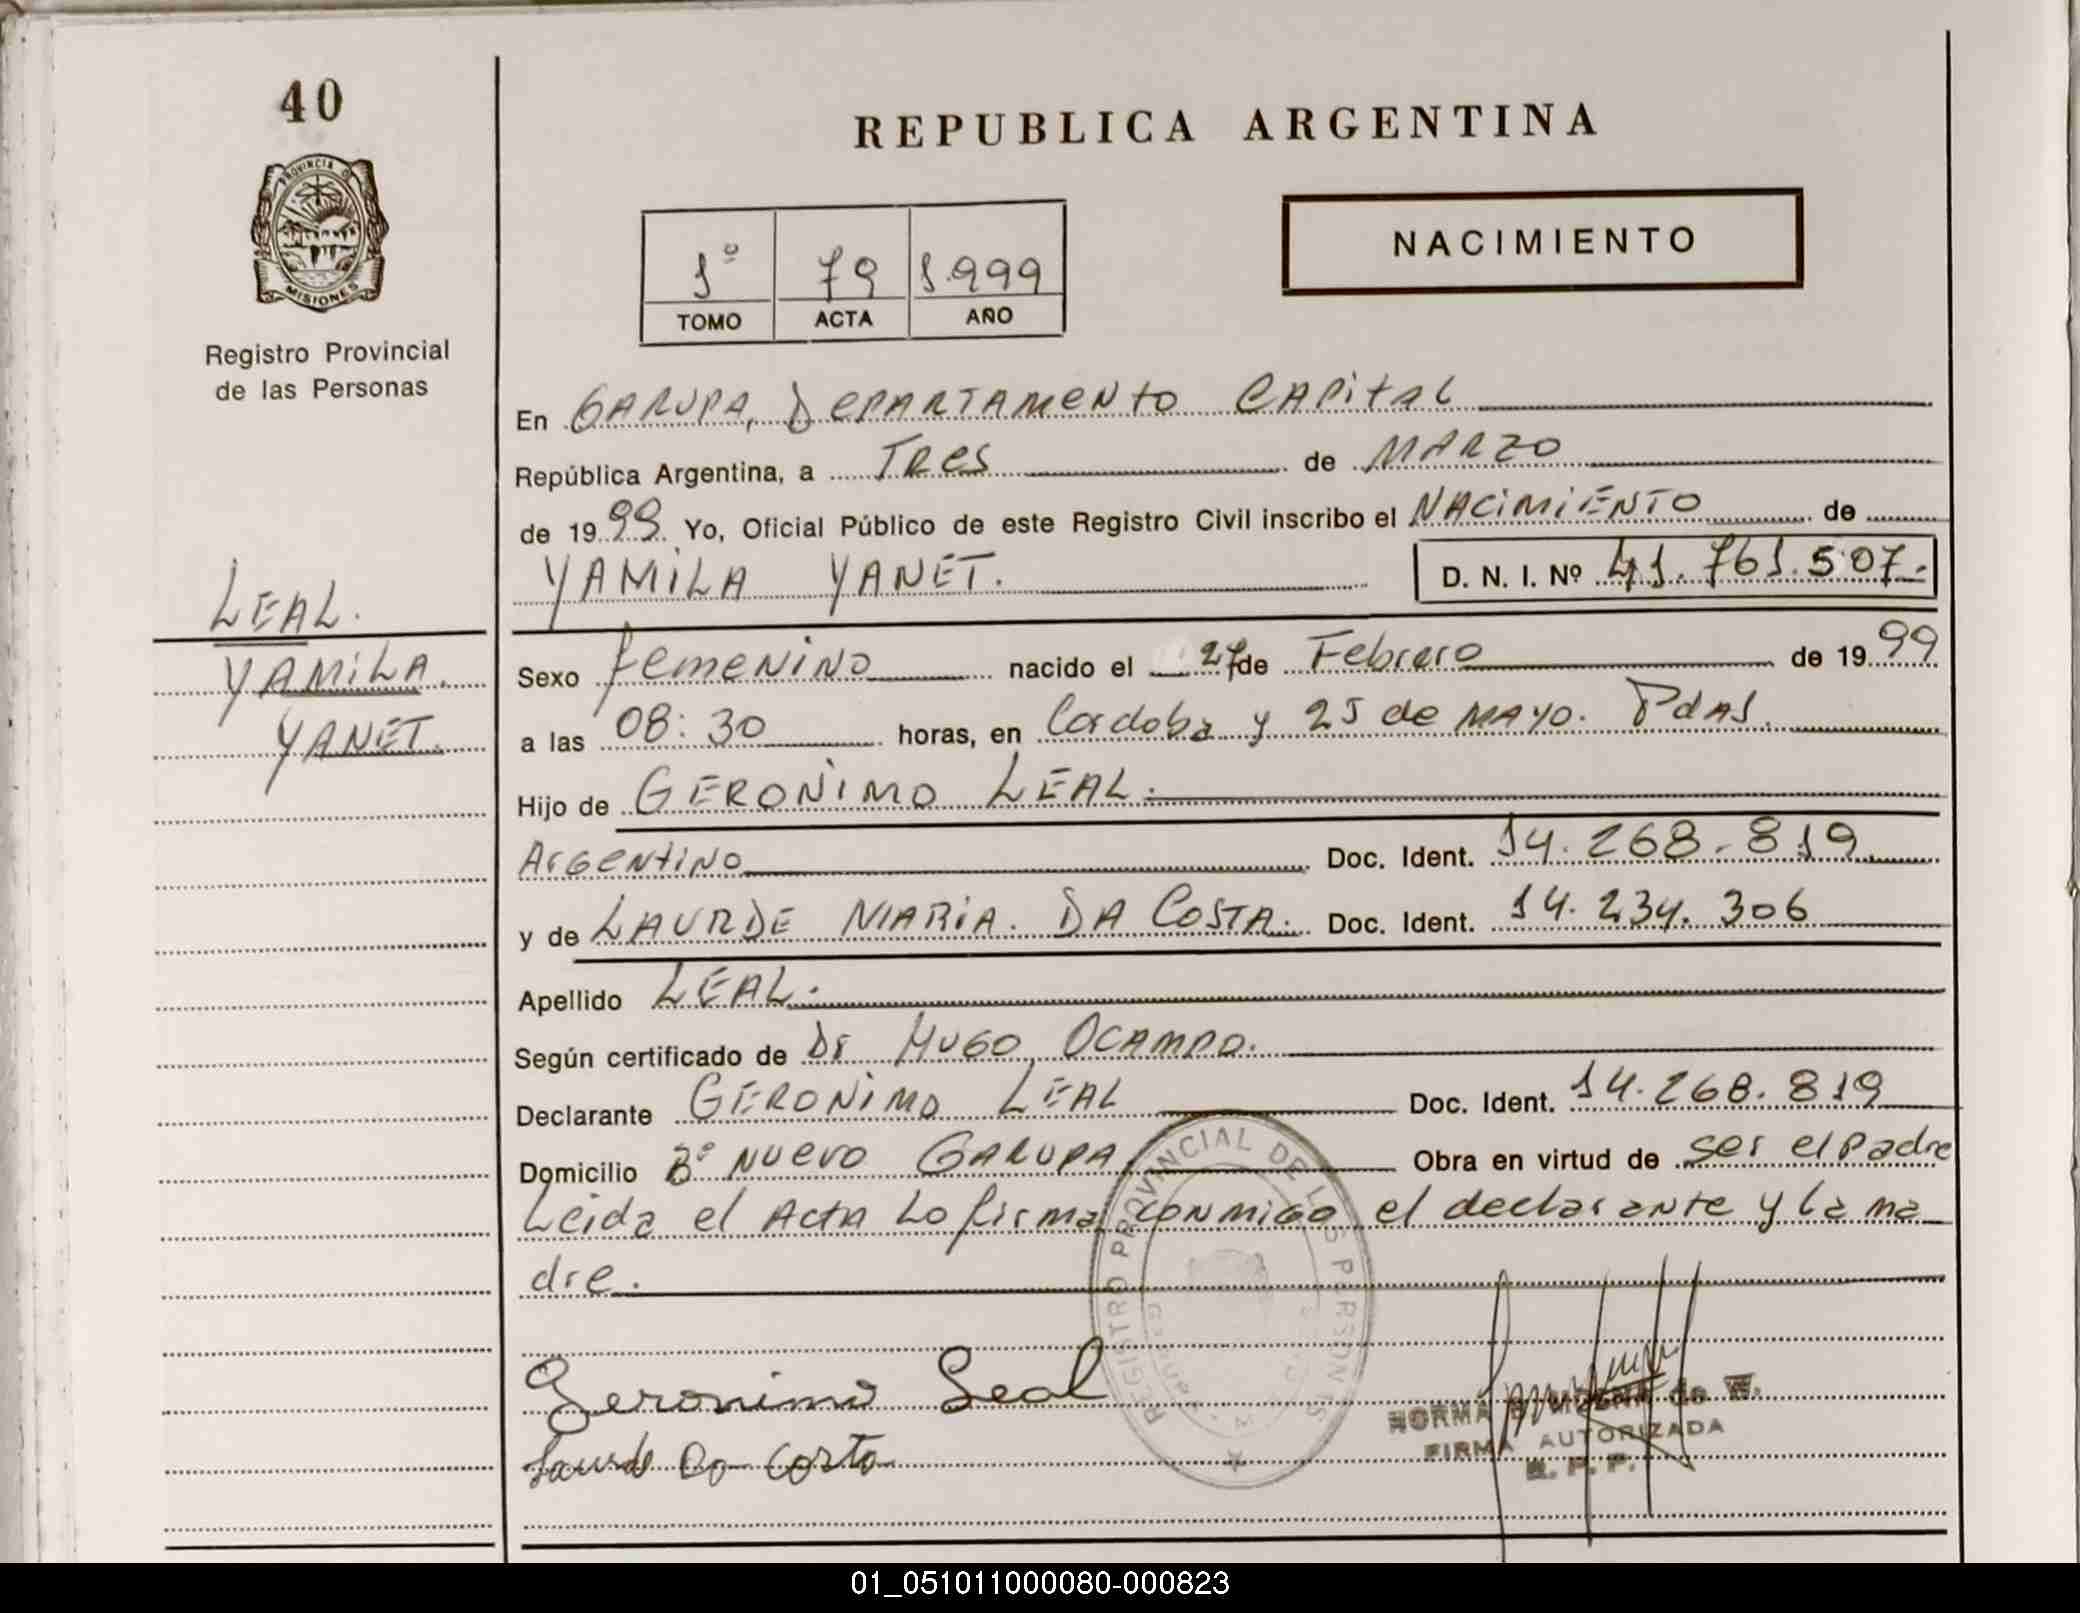 40
PROVINCIA D
MISIONES
Registro Provincial
de las Personas
REPUBLICA ARGENTINA
1º 79 1.999
TOMO ACTA AÑO
NACIMIENTO
En GARUPA, DEPARTAMENTO CAPITAL
República Argentina, a TRES de MARZO
de 1999 Yo, Oficial Público de este Registro Civil inscribo el NACIMIENTO de
YAMILA YANET. D. N. I. Nº 41.761.507.-
LEAL.
YAMILA.
YANET.
Sexo femenino nacido el 27 de Febrero de 1999
a las 08:30 horas, en Cordoba y 25 de MAYO. Pdas.
Hijo de GERONIMO LEAL.
Argentino Doc. Ident. 14.268.819
y de LAURDE MARIA. DA COSTA. Doc. Ident. 14.234.306
Apellido LEAL.
Según certificado de Dr HUGO OCAMPO.
Declarante GERONIMO LEAL Doc. Ident. 14.268.819
Domicilio Bº NUEVO GARUPA Obra en virtud de ser el padre
Leida el Acta Lo firma conmigo el declarante y la ma
dre.
REGISTRO PROVINCIAL DE LAS PERSONAS
Geronimo Leal
Laurde Da Costa
NORMA de W.
FIRMA AUTORIZADA
R. P. P.
01_051011000080-000823